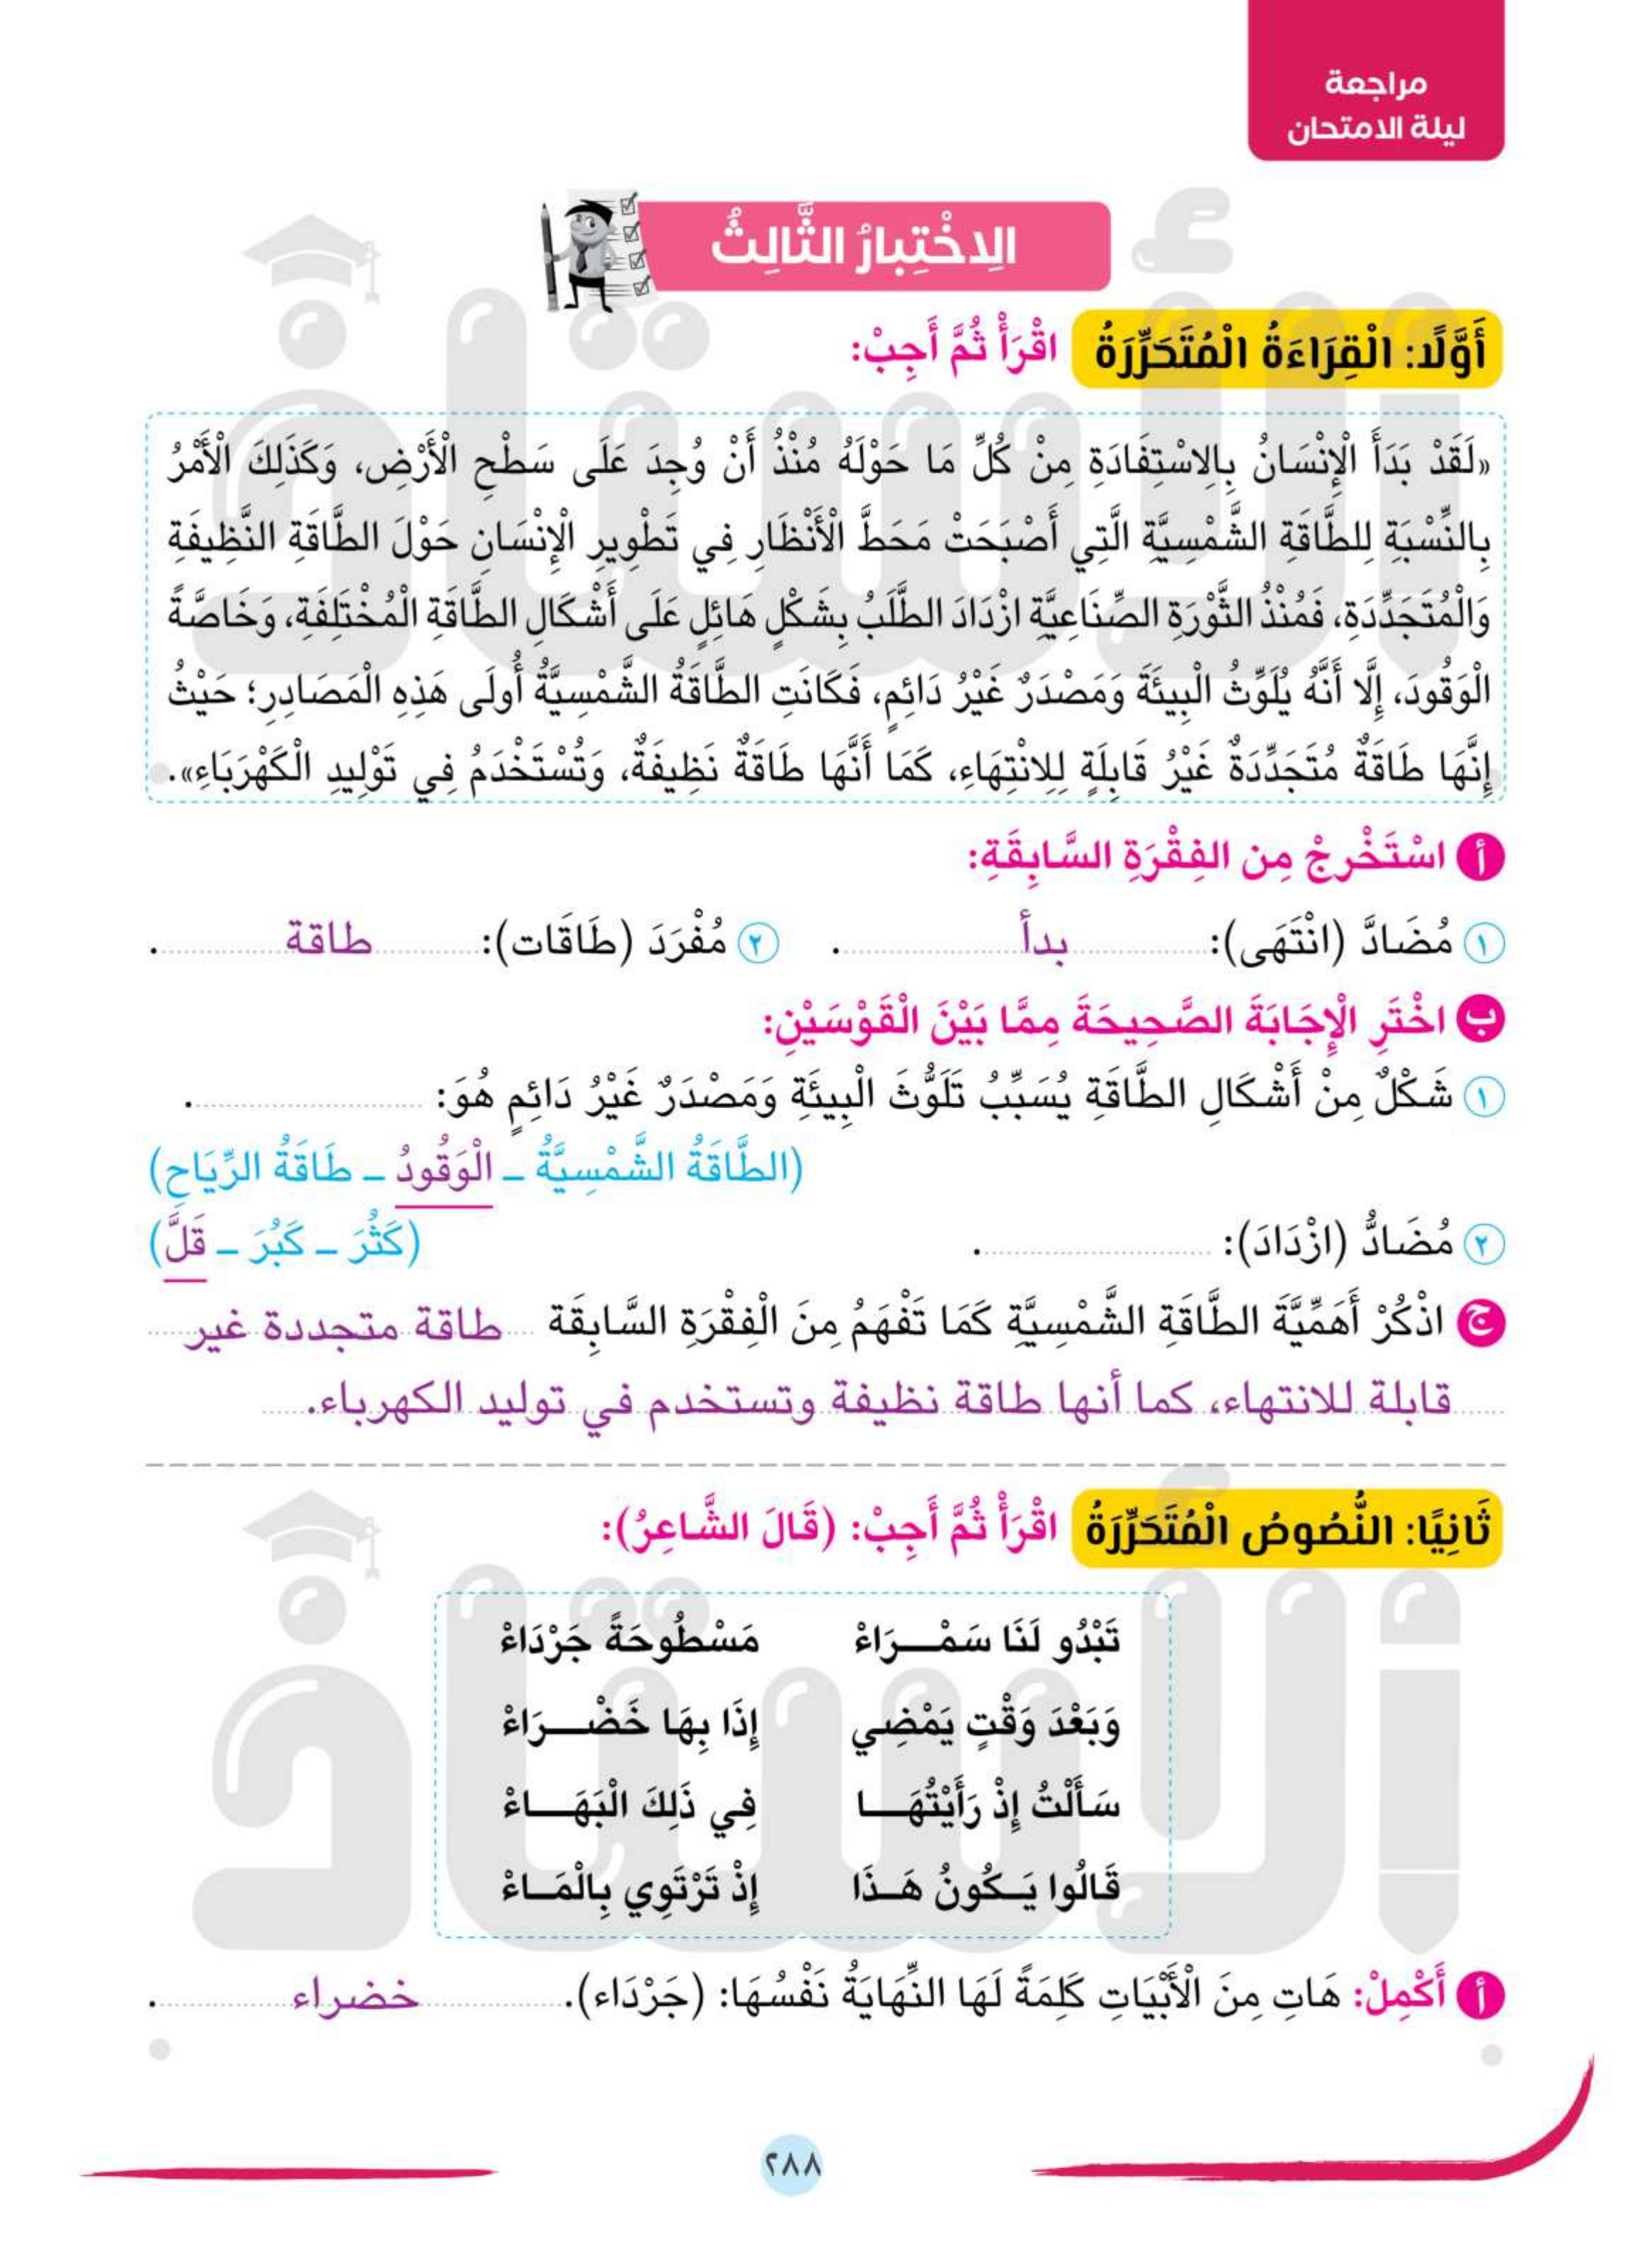 مراجعة
ليلة الامتحان
الِاخْتِبارُ الثَّالِثُ
أَوَّلًا: الْقِرَاءَةُ الْمُتَحَرِّرَةُ اقْرَأْ ثُمَّ أَجِبْ:
«لَقَدْ بَدَأَ الْإِنْسَانُ بِالِاسْتِفَادَةِ مِنْ كُلِّ مَا حَوْلَهُ مُنْذُ أَنْ وُجِدَ عَلَى سَطْحِ الْأَرْضِ، وَكَذَلِكَ الْأَمْرُ
بِالنِّسْبَةِ لِلطَّاقَةِ الشَّمْسِيَّةِ الَّتِي أَصْبَحَتْ مَحَطَّ الْأَنْظَارِ فِي تَطْوِيرِ الْإِنْسَانِ حَوْلَ الطَّاقَةِ النَّظِيفَةِ
وَالْمُتَجَدِّدَةِ، فَمُنْذُ الثَّوْرَةِ الصِّنَاعِيَّةِ ازْدَادَ الطَّلَبُ بِشَكْلٍ هَائِلٍ عَلَى أَشْكَالِ الطَّاقَةِ الْمُخْتَلِفَةِ، وَخَاصَّةً
الْوَقُودَ، إِلَّا أَنَّهُ يُلَوِّثُ الْبِيئَةَ وَمَصْدَرٌ غَيْرُ دَائِمٍ، فَكَانَتِ الطَّاقَةُ الشَّمْسِيَّةُ أُولَى هَذِهِ الْمَصَادِرِ؛ حَيْثُ
إِنَّهَا طَاقَةٌ مُتَجَدِّدَةٌ غَيْرُ قَابِلَةٍ لِلِانْتِهَاءِ، كَمَا أَنَّهَا طَاقَةٌ نَظِيفَةٌ، وَتُسْتَخْدَمُ فِي تَوْلِيدِ الْكَهْرَبَاءِ».
أ اسْتَخْرِجْ مِن الفِقْرَةِ السَّابِقَةِ:
١ مُضَادَّ (انْتَهَى): بدأ . ٢ مُفْرَدَ (طَاقَات): طاقة .
ب اخْتَرِ الْإِجَابَةَ الصَّحِيحَةَ مِمَّا بَيْنَ الْقَوْسَيْنِ:
١ شَكْلٌ مِنْ أَشْكَالِ الطَّاقَةِ يُسَبِّبُ تَلَوُّثَ الْبِيئَةِ وَمَصْدَرٌ غَيْرُ دَائِمٍ هُوَ: .
(الطَّاقَةُ الشَّمْسِيَّةُ ـ الْوَقُودُ ـ طَاقَةُ الرِّيَاحِ)
٢ مُضَادُّ (ازْدَادَ): . (كَثُرَ ـ كَبُرَ ـ قَلَّ)
ج اذْكُرْ أَهَمِّيَّةَ الطَّاقَةِ الشَّمْسِيَّةِ كَمَا تَفْهَمُ مِنَ الْفِقْرَةِ السَّابِقَة طاقة متجددة غير
قابلة للانتهاء، كما أنها طاقة نظيفة وتستخدم في توليد الكهرباء.
ثَانِيًا: النُّصُوصُ الْمُتَحَرِّرَةُ اقْرَأْ ثُمَّ أَجِبْ: (قَالَ الشَّاعِرُ):
تَبْدُو لَنَا سَمْـــرَاءْ مَسْطُوحَةً جَرْدَاءْ
وَبَعْدَ وَقْتٍ يَمْضِي إِذَا بِهَا خَضْـــرَاءْ
سَأَلْتُ إِذْ رَأَيْتُهَـــا فِي ذَلِكَ الْبَهَـــاءْ
قَالُوا يَـكُونُ هَـذَا إِذْ تَرْتَوِي بِالْمَـاءْ
أ أَكْمِلْ: هَاتِ مِنَ الْأَبْيَاتِ كَلِمَةً لَهَا النِّهَايَةُ نَفْسُهَا: (جَرْدَاء). خضراء .
٢٨٨
الأستاذ
الأستاذ